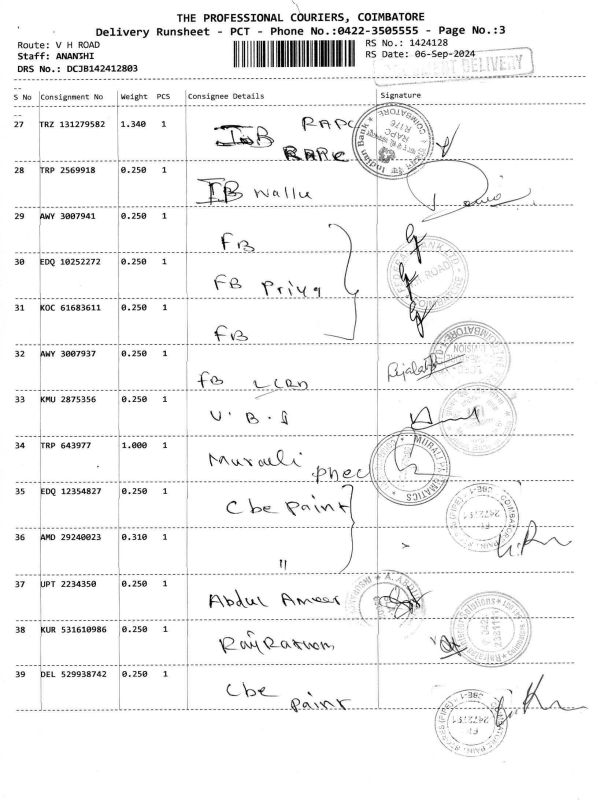 THE PROFESSIONAL COURIERS, COIMBATORE
Delivery Runsheet - PCT - Phone No.:0422-3505555 - Page No.:3
Route: V H ROAD
RS No.: 1424128
Staff: ANANTHI
RS Date: 06-Sep-2024
DRS No.: DCJB142412803
DELIVERY
S No Consignment No Weight PCS Consignee Details Signature
27 TRZ 131279582 1.340 1 IOB RAPC
RAPC
Indian Bank
RAPC
R176
28 TRP 2569918 0.250 1
IB
29 AWY 3007941 0.250 1
FB
30 EDQ 10252272 0.250 1
FB Priya
ROAD
31 KOC 61683611 0.250 1
FB
32 AWY 3007937 0.250 1
FB LCRD
COIMBATORE
33 KMU 2875356 0.250 1
U.B.I
34 TRP 643977 1.000 1
Murali
35 EDQ 12354827 0.250 1
Cbe paint
COIMBATORE
2472391
36 AMD 29240023 0.310 1
"
37 UPT 2234350 0.250 1
Abdul Ameer
38 KUR 531610986 0.250 1
Solutions
39 DEL 529938742 0.250 1
Cbe
paint
2472391